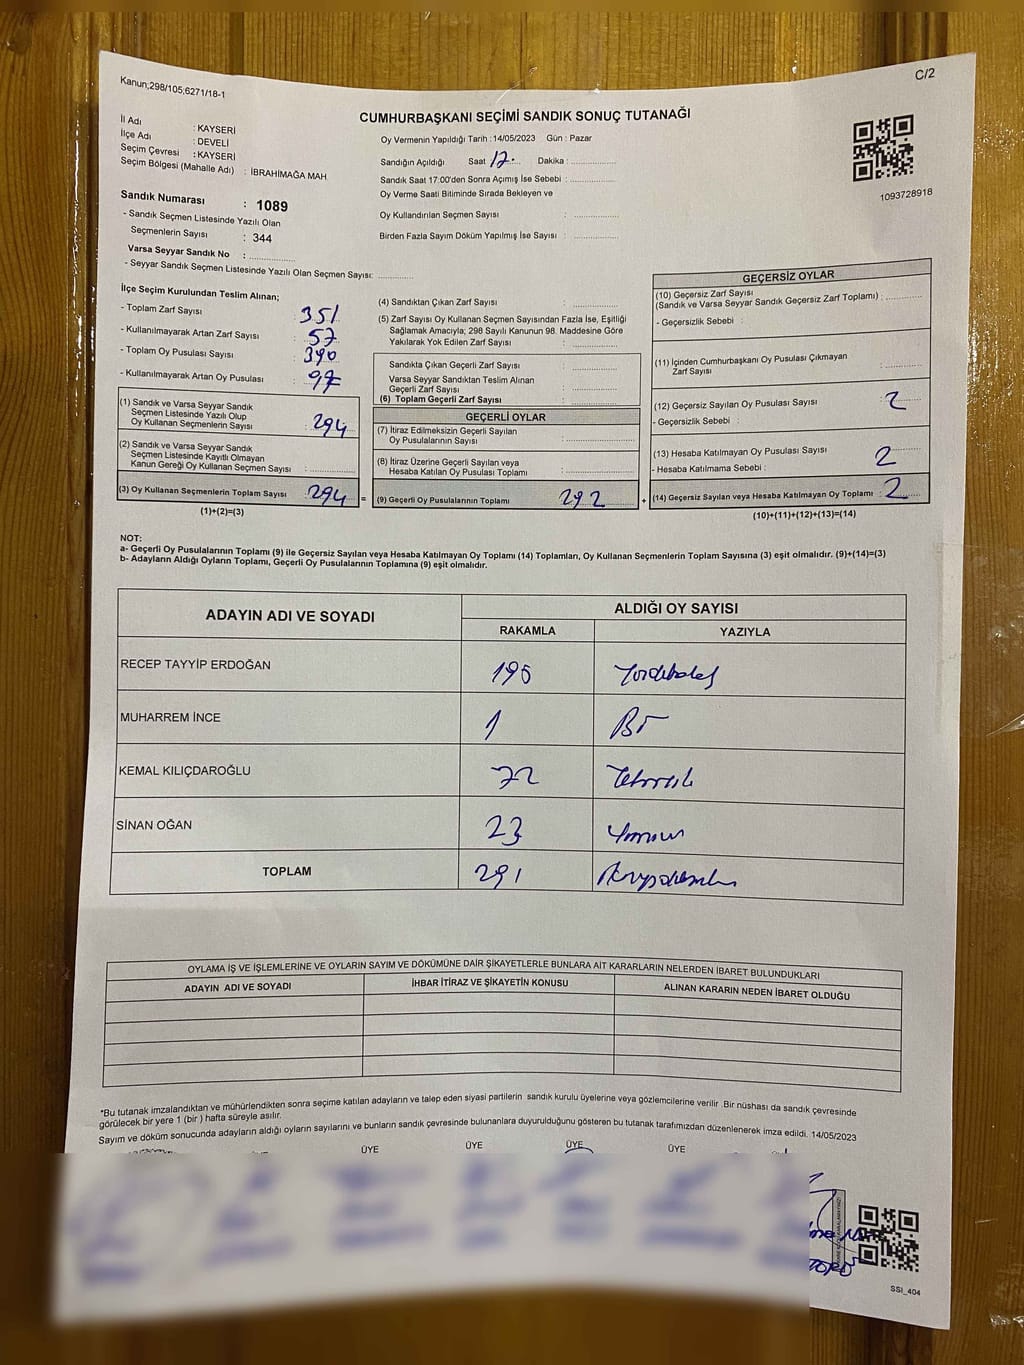 Kanun;298/105;6271/18-1
C/2
CUMHURBAŞKANI SEÇİMİ SANDIK SONUÇ TUTANAĞI
İl Adı : KAYSERİ
İlçe Adı : DEVELİ
Seçim Çevresi : KAYSERİ
Seçim Bölgesi (Mahalle Adı) : İBRAHİMAĞA MAH.
Sandık Numarası : 1089
- Sandık Seçmen Listesinde Yazılı Olan
Seçmenlerin Sayısı : 344
Varsa Seyyar Sandık No : ..............
- Seyyar Sandık Seçmen Listesinde Yazılı Olan Seçmen Sayısı: ............
Oy Vermenin Yapıldığı Tarih :14/05/2023 Gün : Pazar
Sandığın Açıldığı Saat 17. Dakika : ..............
Sandık Saat 17:00'den Sonra Açımış İse Sebebi : ..............
Oy Verme Saati Bitiminde Sırada Bekleyen ve
Oy Kullandırılan Seçmen Sayısı : ..............
Birden Fazla Sayım Döküm Yapılmış İse Sayısı : ..............
1093728918
İlçe Seçim Kurulundan Teslim Alınan;
- Toplam Zarf Sayısı : 351
- Kullanılmayarak Artan Zarf Sayısı : 57
- Toplam Oy Pusulası Sayısı : 390
- Kullanılmayarak Artan Oy Pusulası : 97
(1) Sandık ve Varsa Seyyar Sandık
Seçmen Listesinde Yazılı Olup
Oy Kullanan Seçmenlerin Sayısı : 294
(2) Sandık ve Varsa Seyyar Sandık
Seçmen Listesinde Kayıtlı Olmayan
Kanun Gereği Oy Kullanan Seçmen Sayısı : ..............
(3) Oy Kullanan Seçmenlerin Toplam Sayısı : 294 =
(1)+(2)=(3)
(4) Sandıktan Çıkan Zarf Sayısı : ..............
(5) Zarf Sayısı Oy Kullanan Seçmen Sayısından Fazla İse, Eşitliği
Sağlamak Amacıyla; 298 Sayılı Kanunun 98. Maddesine Göre
Yakılarak Yok Edilen Zarf Sayısı : ..............
Sandıkta Çıkan Geçerli Zarf Sayısı : ..............
Varsa Seyyar Sandıktan Teslim Alınan
Geçerli Zarf Sayısı : ..............
(6) Toplam Geçerli Zarf Sayısı : ..............
GEÇERLİ OYLAR
(7) İtiraz Edilmeksizin Geçerli Sayılan
Oy Pusulalarının Sayısı : ..............
(8) İtiraz Üzerine Geçerli Sayılan veya
Hesaba Katılan Oy Pusulası Toplamı : ..............
(9) Geçerli Oy Pusulalarının Toplamı : 292 +
GEÇERSİZ OYLAR
(10) Geçersiz Zarf Sayısı
(Sandık ve Varsa Seyyar Sandık Geçersiz Zarf Toplamı) : ............
- Geçersizlik Sebebi :
(11) İçinden Cumhurbaşkanı Oy Pusulası Çıkmayan
Zarf Sayısı : ............
(12) Geçersiz Sayılan Oy Pusulası Sayısı : 2
- Geçersizlik Sebebi :
(13) Hesaba Katılmayan Oy Pusulası Sayısı : 2
- Hesaba Katılmama Sebebi :
(14) Geçersiz Sayılan veya Hesaba Katılmayan Oy Toplamı : 2
(10)+(11)+(12)+(13)=(14)
NOT:
a- Geçerli Oy Pusulalarının Toplamı (9) ile Geçersiz Sayılan veya Hesaba Katılmayan Oy Toplamı (14) Toplamları, Oy Kullanan Seçmenlerin Toplam Sayısına (3) eşit olmalıdır. (9)+(14)=(3)
b- Adayların Aldığı Oyların Toplamı, Geçerli Oy Pusulalarının Toplamına (9) eşit olmalıdır.
ADAYIN ADI VE SOYADI ALDIĞI OY SAYISI
RAKAMLA YAZIYLA
RECEP TAYYİP ERDOĞAN 195
MUHARREM İNCE 1 Bir
KEMAL KILIÇDAROĞLU 72
SİNAN OĞAN 23
TOPLAM 291
OYLAMA İŞ VE İŞLEMLERİNE VE OYLARIN SAYIM VE DÖKÜMÜNE DAİR ŞİKAYETLERLE BUNLARA AİT KARARLARIN NELERDEN İBARET BULUNDUKLARI
ADAYIN ADI VE SOYADI İHBAR İTİRAZ VE ŞİKAYETİN KONUSU ALINAN KARARIN NEDEN İBARET OLDUĞU
*Bu tutanak imzalandıktan ve mühürlendikten sonra seçime katılan adayların ve talep eden siyasi partilerin sandık kurulu üyelerine veya gözlemcilerine verilir .Bir nüshası da sandık çevresinde
görülecek bir yere 1 (bir ) hafta süreyle asılır.
Sayım ve döküm sonucunda adayların aldığı oyların sayılarını ve bunların sandık çevresinde bulunanlara duyurulduğunu gösteren bu tutanak tarafımızdan düzenlenerek imza edildi. 14/05/2023
ÜYE ÜYE ÜYE ÜYE
SSI_404